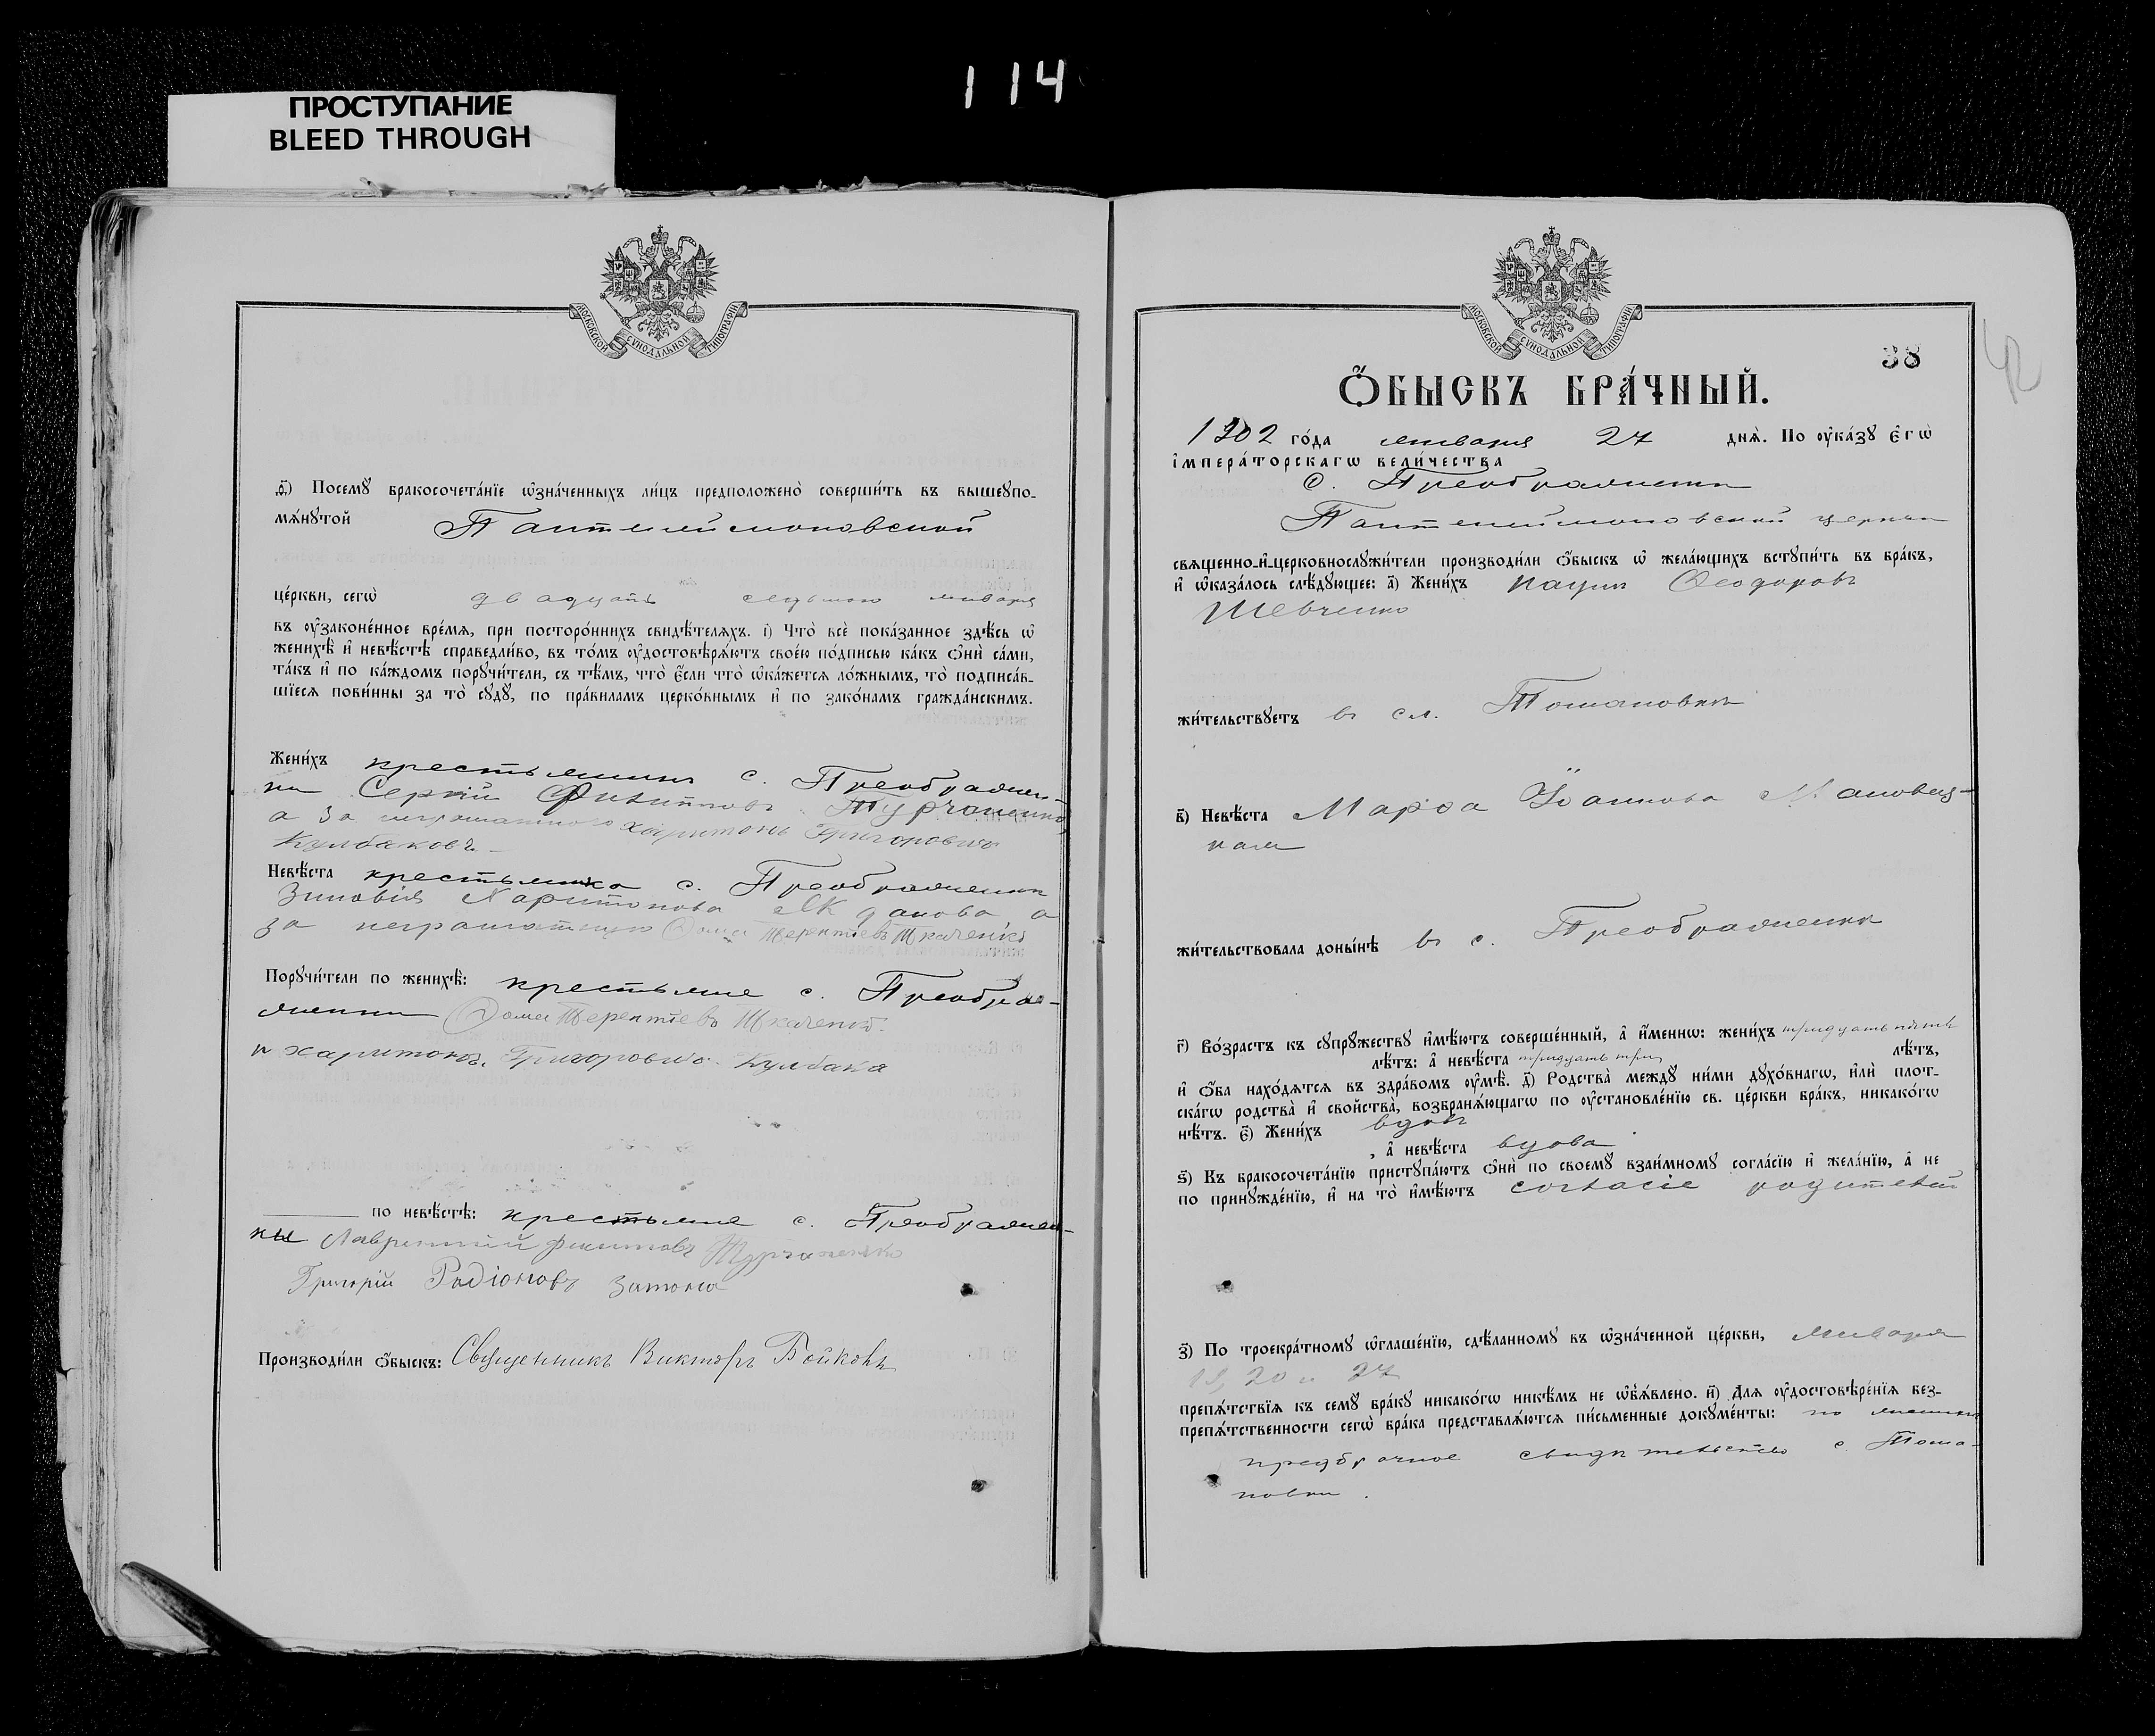 114
ПРОСТУПАНИЕ
BLEED THROUGH
МОСКОВСКОЙ СѴНОДАЛЬНОЙ ТИПОГРАФІИ
ѳ҃) Посемꙋ бракосочета́нїе ѡ҆зна́ченныхъ ли́цъ предположено̀ соверши́ть въ вышеꙋпо-
мѧ́нꙋтой Пантелеймоновской
це́ркви, сегѡ̀ двадцать седьмого января
въ ᲂу҆законе́нное вре́мѧ, при посторо́ннихъ свидѣ́телѧхъ. і҃) Что̀ всѐ пока́занное здѣ́сь ѡ҆
женихѣ̀ и҆ невѣ́стѣ справедли́во, въ то́мъ ᲂу҆достовѣрѧ́ютъ свое́ю по́дписью ка́къ ѻ҆нѝ са́ми,
та́къ и҆ по ка́ждомъ порꙋчи́тели, съ тѣ́мъ, что̀ є҆́сли что̀ ѡ҆ка́жетсѧ ло́жнымъ, то̀ подписа́в-
шїесѧ пови́нны за то̀ сꙋдꙋ̀, по пра́виламъ церко́внымъ и҆ по зако́намъ гражда́нскимъ.
Жени́хъ крестьянинъ с. Преображен-
ки Сергій Филипповъ Турчаненко,
а за неграматного Харитонъ Григоровичъ
Кулбаковъ
Невѣ́ста крестьянка с. Преображенки
Зиновія Харитонова Жданова, а
за неграматную Фома Терентіевъ Ткаченко
Порꙋчи́тели по женихѣ̀: крестьяне с. Преобра-
женки Фома Терентіевъ Ткаченко
и Харитонъ Григоровичъ Кулбака
по невѣ́стѣ: крестьяне с. Преображен-
ки Лаврентий Турчаненко
Григорій Родіоновъ Затона
Производи́ли ѻ҆́быскъ: Священникъ Викторъ Бойковъ
МОСКОВСКОЙ СѴНОДАЛЬНОЙ ТИПОГРАФІИ
38
Ѻ҆́БЫСКЪ БРА́ЧНЫЙ.
1902 го́да января 27 днѧ̀. По ᲂу҆ка́зꙋ є҆гѡ̀
і҆мпера́торскагѡ вели́чества
с. Преображенки
Пантелеймоновской церкви
сващенно-и҆-церковнослꙋжи́тели производи́ли ѻ҆́быскъ ѡ҆ жела́ющихъ встꙋпи́ть въ бра́къ,
и҆ ѡ҆каза́лось слѣ́дꙋющее: а҃) Жени́хъ Феодоровъ
Шевченко
жи́тельствꙋетъ въ сл. Томановки
в҃) Невѣ́ста Марѳа Іоаннова
жи́тельствовала доны́нѣ въ с. Преображенки
г҃) Во́зрастъ къ сꙋпрꙋ́жествꙋ и҆мѣ́ютъ соверше́нный, а҆ и҆́меннѡ: жени́хъ тридцать пять
лѣ́тъ: а҆ невѣ́ста тридцать три лѣ́тъ,
и҆ ѻ҆́ба нахо́дѧтсѧ въ здра́вомъ ᲂу҆мѣ̀. д҃) Родства̀ междꙋ̀ ни́ми дꙋхо́внагѡ, и҆лѝ плот-
ска́гѡ родства̀ и҆ сво́йства̀, возбранѧ́ющагѡ по ᲂу҆становле́нїю св. це́ркви бра́къ, никако́гѡ
нѣ́тъ. є҃) Жени́хъ вдовъ
, а҆ невѣ́ста вдова
ѕ҃) Къ бракосочета́нїю пристꙋпа́ютъ ѻ҆нѝ по своемꙋ̀ взаи́мномꙋ согла́сїю и҆ жела́нїю, а҆ не
по принꙋжде́нїю, и҆ на то̀ и҆мѣ́ютъ согласіе родителей
з҃) По троекра́тномꙋ ѡ҆глаше́нїю, сдѣ́ланномꙋ въ ѡ҆зна́ченной це́ркви, января
20 и 27
препѧ́тствїѧ къ семꙋ̀ бра́кꙋ никако́гѡ никѣ́мъ не ѡ҆б̾ѧ́влено. и҃) Длѧ ᲂу҆достовѣре́нїѧ без-
препѧ́тственности сегѡ̀ бра́ка представлѧ́ютсѧ пи́сьменные докꙋме́нты:
предбрачное свидѣтельство с. Тома-
новки.